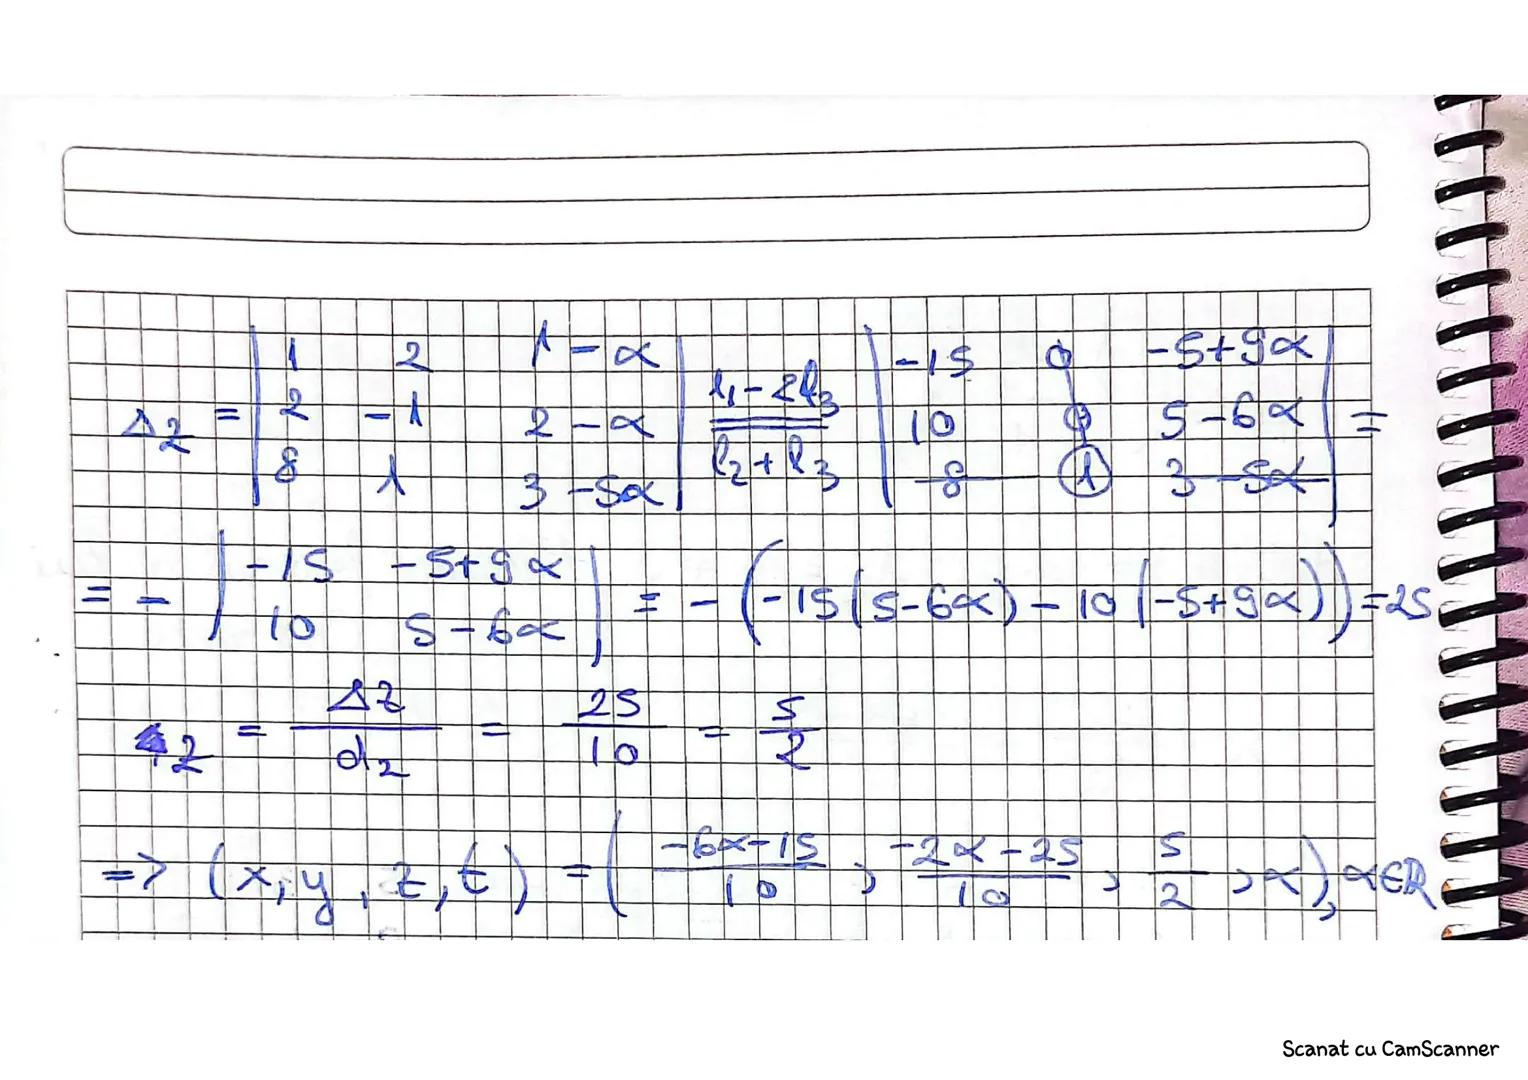 Δz = | 1 2 1-α ; 2 -1 2-α ; 8 1 3-5α | l₁-2l₃ l₂+l₃ | -15 0 -5+9α ; 10 0 5-6α ; 8 1 3-5α | =
= - | -15 -5+9α ; 10 5-6α | = - (-15(5-6α) - 10(-5+9α)) = 25
z = Δz/d₂ = 25/10 = 5/2
=> (x, y, z, t) = ( -6α-15/10 , -2α-25/10 , 5/2 , α ), α∈R
Scanat cu CamScanner